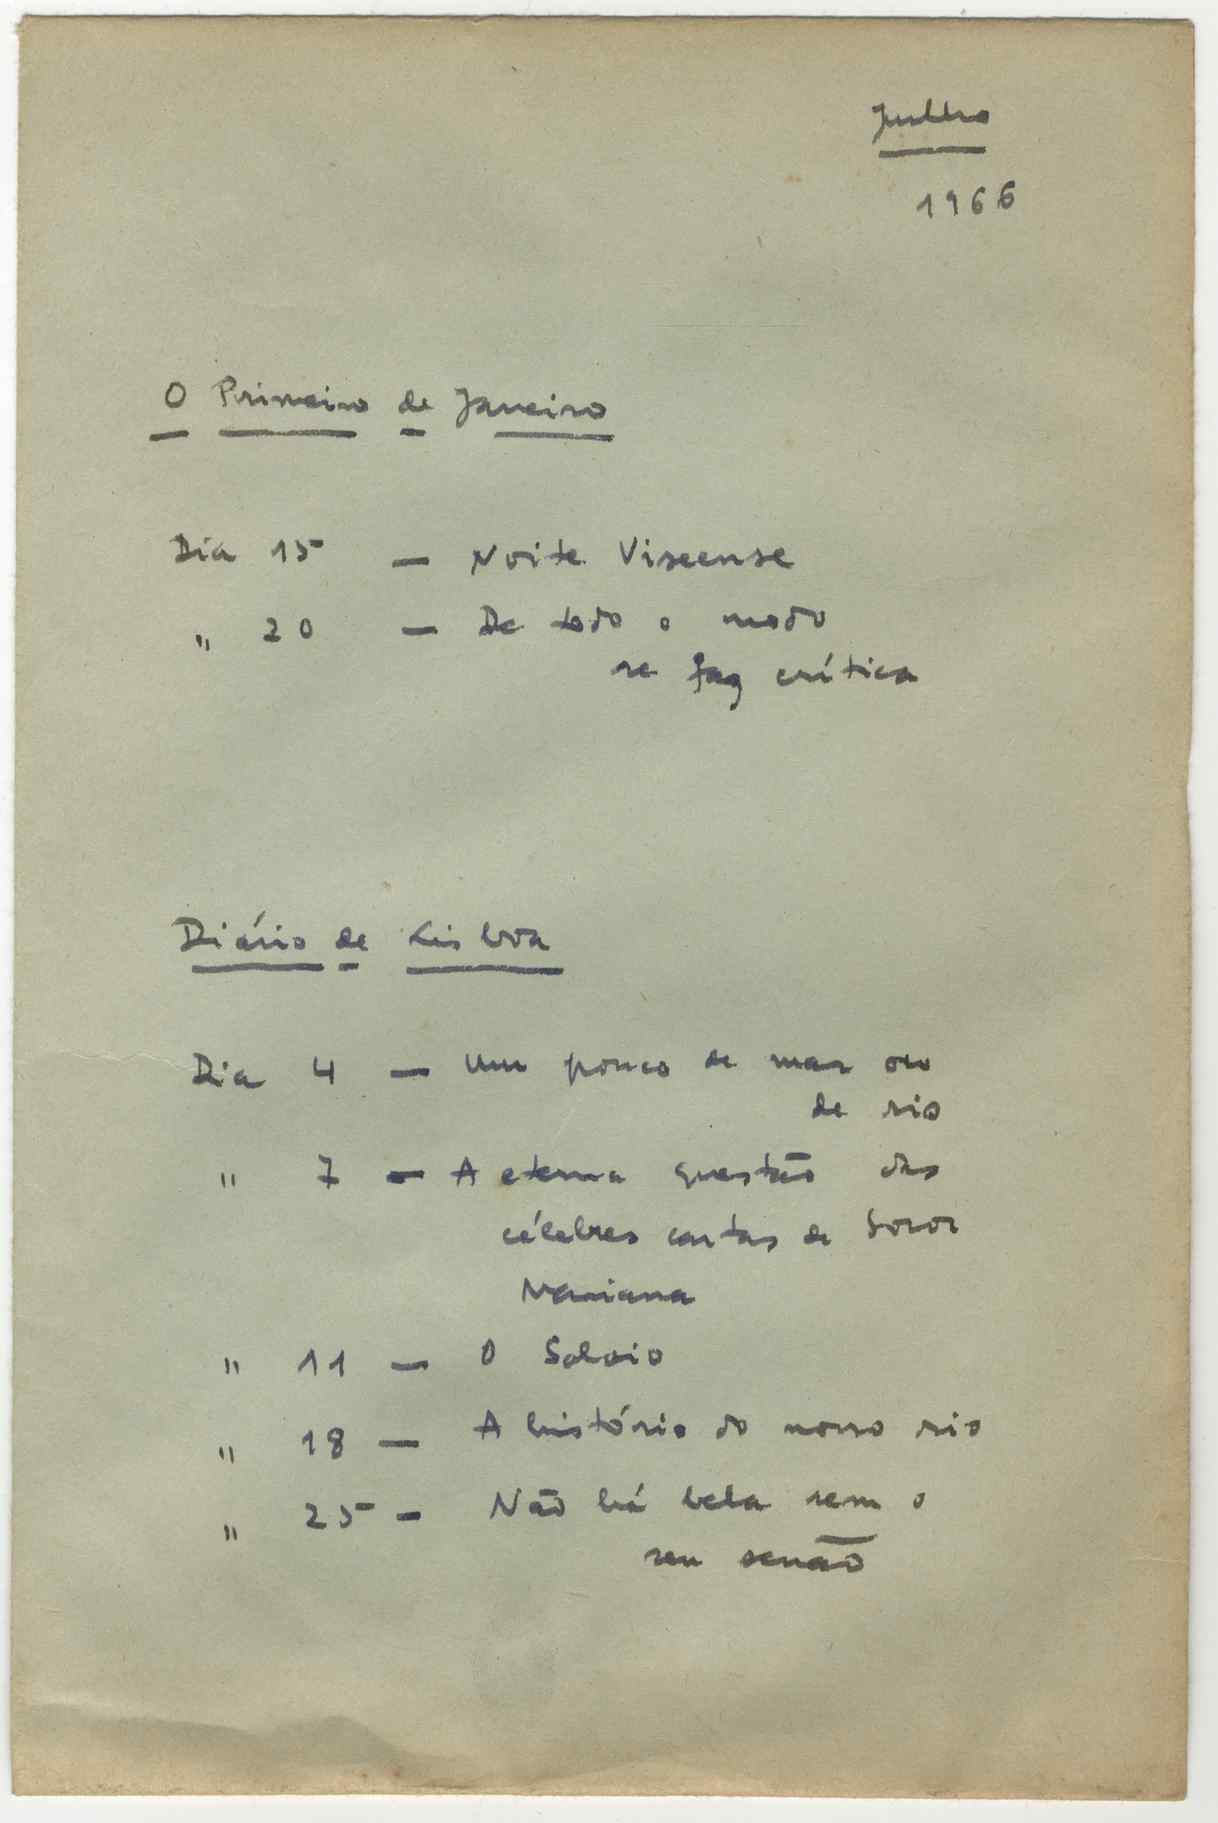 Julho
1966
O Primeiro de Janeiro
Dia 15 — Noite Viseense
" 20 — De todo o modo
se faz crítica
Diário de Lisboa
Dia 4 — Um pouco de mar ou
de rio
" 7 — A eterna questão das
célebres cartas de Soror
Mariana
" 11 — O Saloio
" 18 — A história do nosso rio
" 25 — Não há bela sem o
seu senão